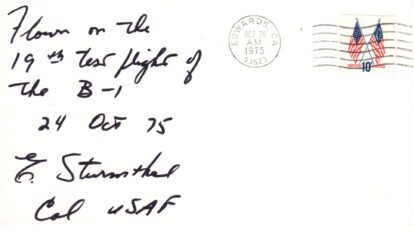 Flown on the
19th test flight of
the B-1
24 Oct 75
E. Sturmthal
Col USAF
EDWARDS, CA
OCT 26
AM
1975
93523
10c